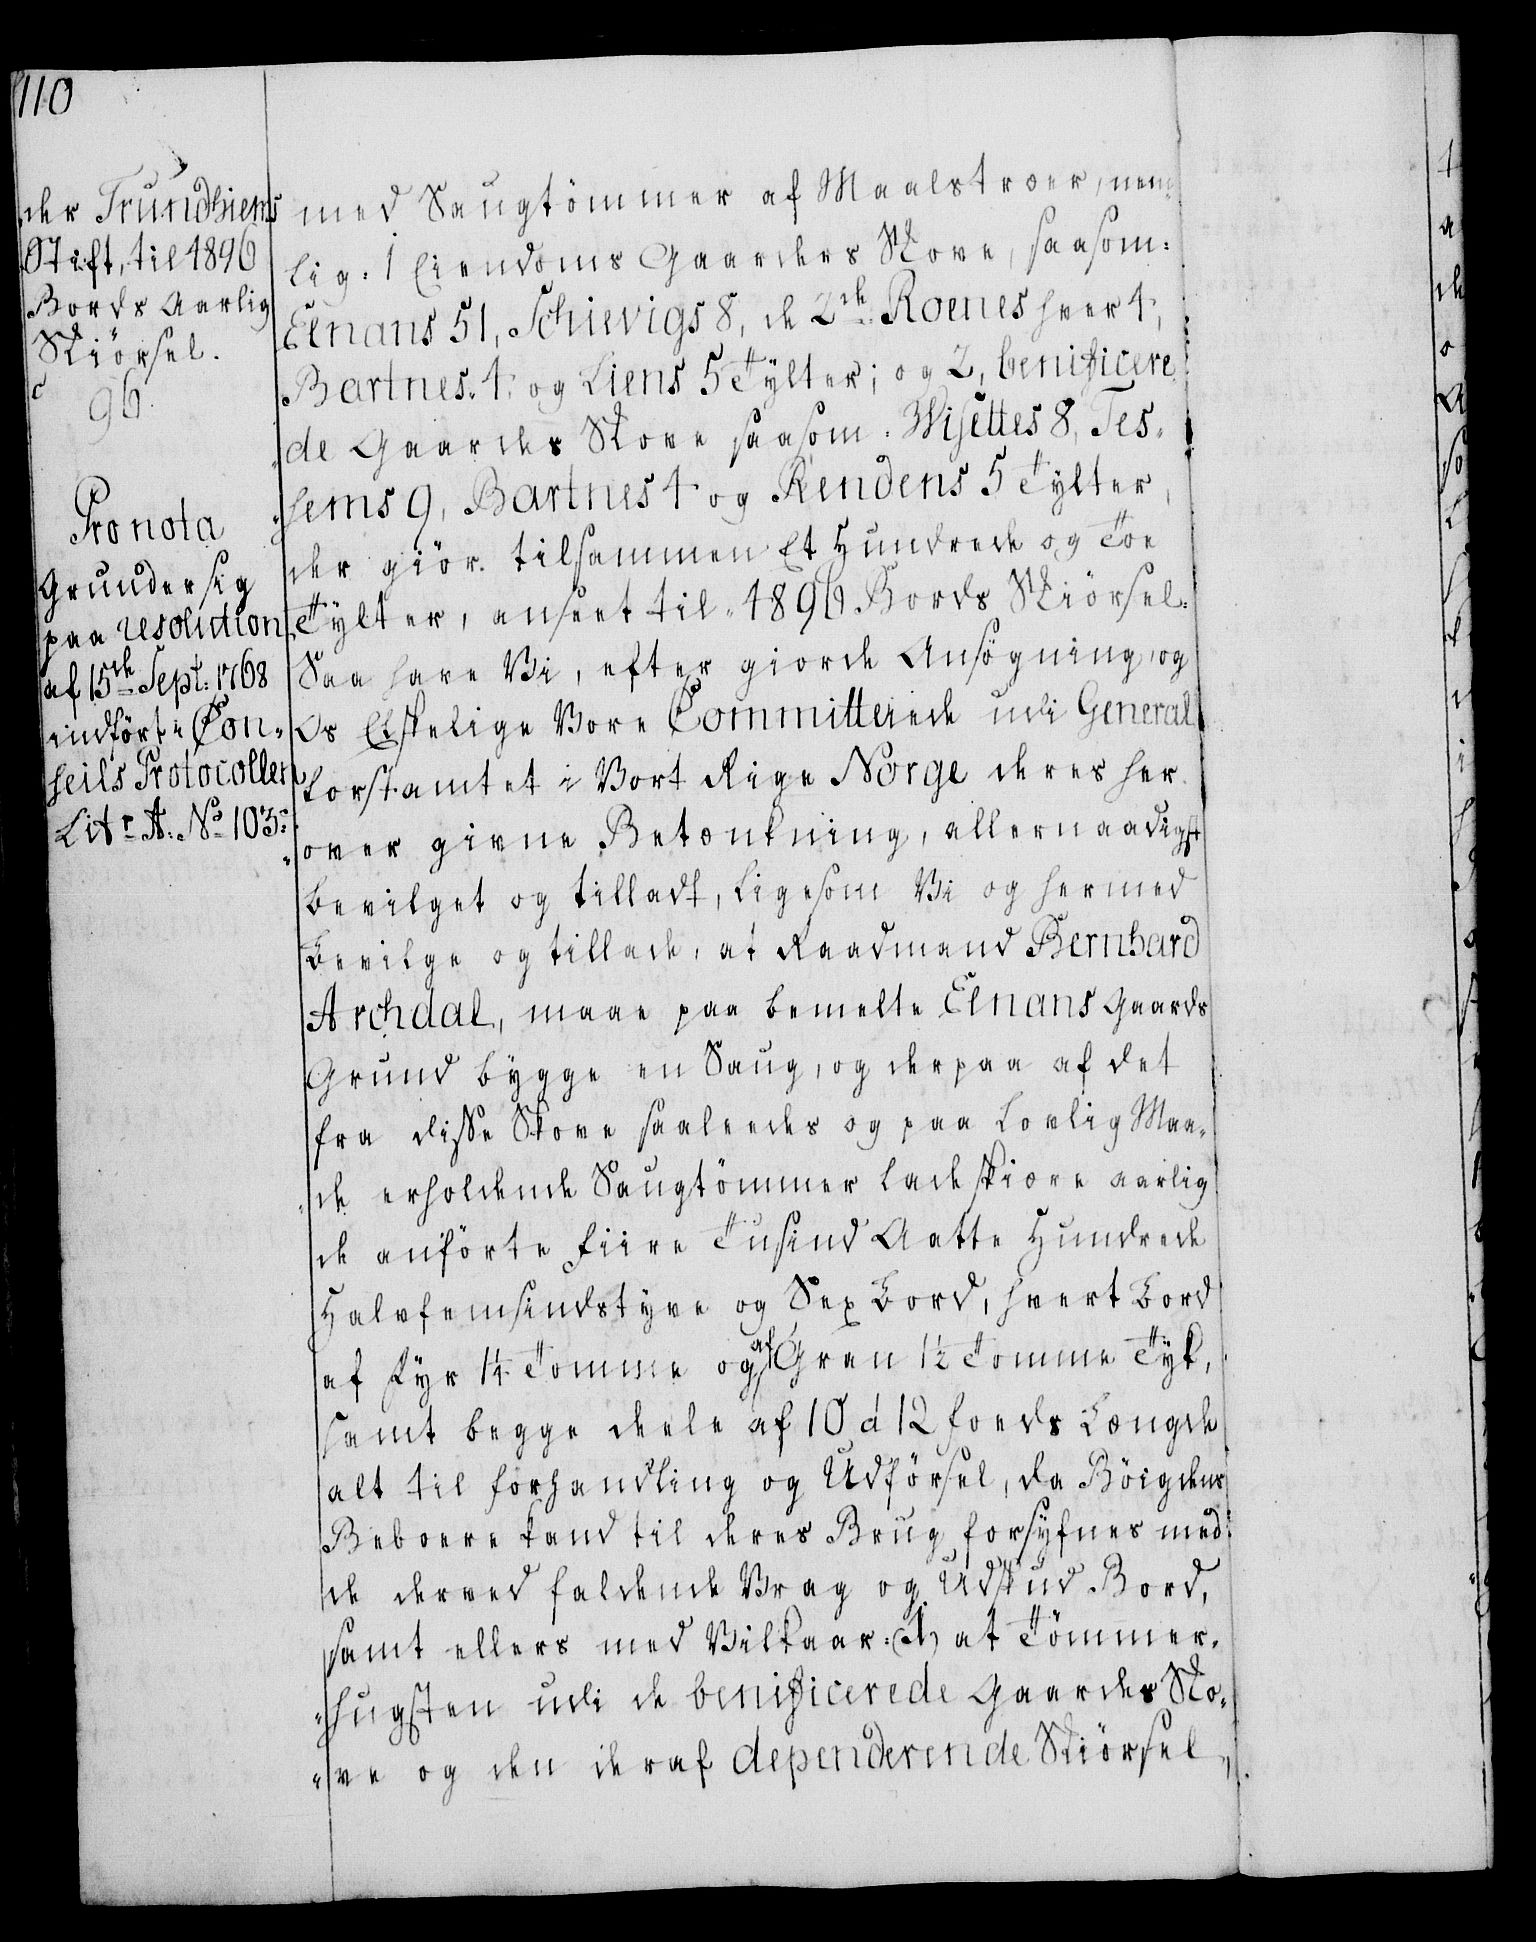 110
der Trundhiems
Stift, til 4896
Bords Aarlig
Skiörsel.
96.
Pro nota
Grunder sig
paa resolution
af 15de Sept: 1768
indfört i Con¬
seils Protocollen
Litr A: No 103:
med Saugtömmer af Maalstræer, nem¬
lig: 1 Eiendoms Gaardes Skove, saasom:
Elnans 51, Schievigs 8, de 2de Roenes hver 4,
Bartnes 4 og Liens 5 Tylter; og 2, benificere
de Gaardes Skove saasom: Wisettes 8, Tes¬
sems 9, Bartnes 4 og Rendens 5 Tylter,
der giör tilsammen Et Hundrede og Toe
Tylter, anseet til 4896 Bords Skiörsel:
Saa have Vi, efter giorde Ansøgning, og
Os Elskelige Vore Committerede udi General
forstamtet i Vort Rige Norge deres her¬
over givne Betænkning, allernaadigst
bevilget og tilladt, ligesom Vi og hermed
bevilge og tillade, at Raadmand Bernhard
Archdal, maae paa bemelte Elnans Gaards
Grund bygge en Saug, og derpaa af det
fra disse Skove saaledes og paa lovlig Maa¬
de erholdende Saugtömmer lade skiære aarlig
de anförte fiire Tusind Aatte Hundrede
Halvfemsindstyve og Sex Bord, hvert Bord
af Fyr 1¼ Tomme og af Gran 1½ Tomme Tyk,
samt begge deele af 10 à 12 foeds Længde
alt til forhandling og Udförsel, da Böigdens
Beboere kand til deres Brug forsyfnes med
de derved faldende Vrag og Udskud Bord,
samt ellers med Vilkaar: (1) at Tömmer¬
hugsten udi de benificerede Gaardes Sko¬
ve og den deraf dependerende Skiörsel,